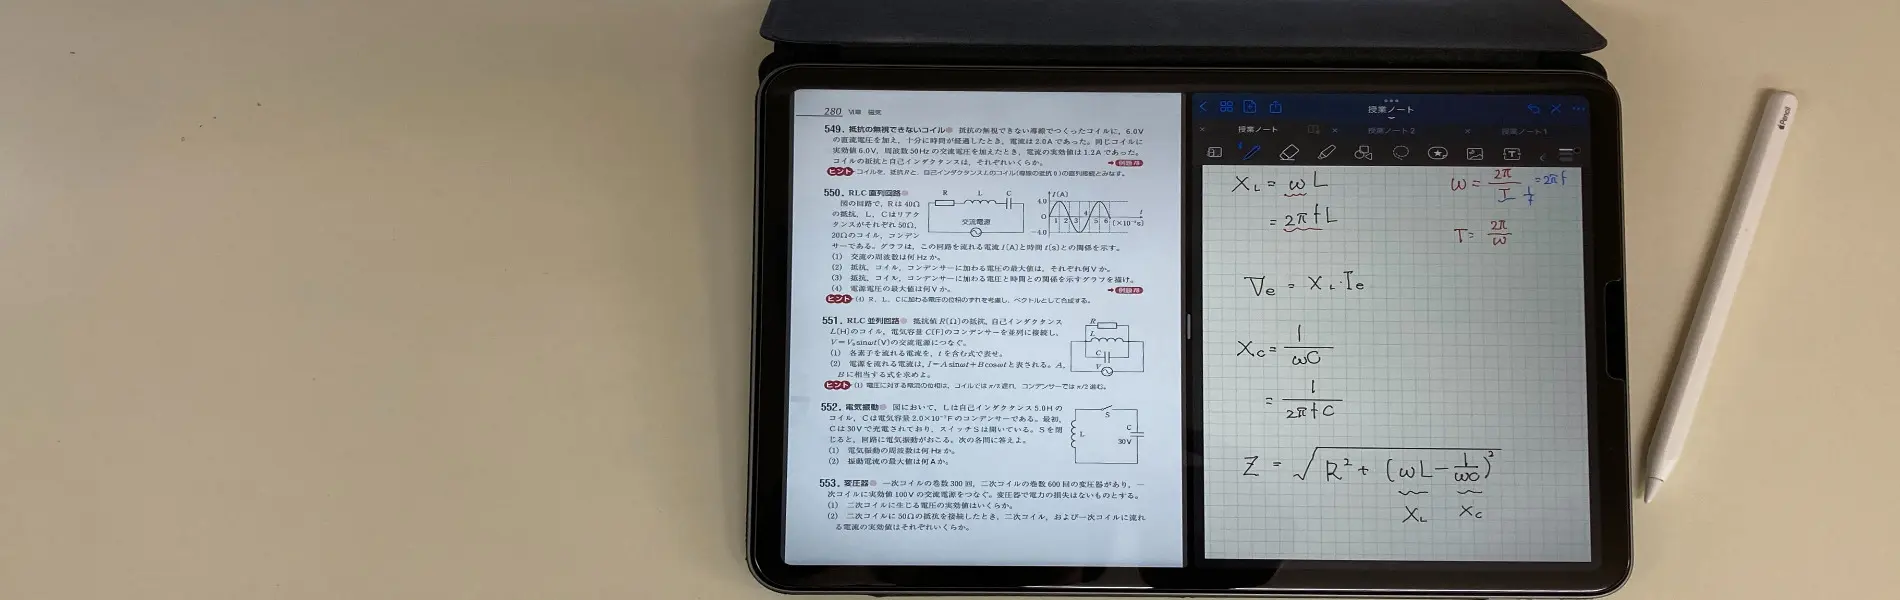 280 VI章 磁気
549. 抵抗の無視できないコイル 抵抗の無視できない導線でつくったコイルに，6.0V
の直流電圧を加え，十分に時間が経過したとき，電流は2.0Aであった。同じコイルに
実効値6.0V，周波数50Hzの交流電圧を加えたとき，電流の実効値は1.2Aであった。
コイルの抵抗と自己インダクタンスは，それぞれいくらか。
ヒント コイルを，抵抗Rと，自己インダクタンスLのコイル(導線の抵抗0)の直列接続とみなす。
550. RLC 直列回路
図の回路で，Rは40Ω
の抵抗，L，Cはリアク
タンスがそれぞれ50Ω，
20Ωのコイル，コンデン
サーである。グラフは，この回路を流れる電流I〔A〕と時間t〔s〕との関係を示す。
R L C
交流電源
I〔A〕
4.0
0
-4.0
1 2 3 4 5 6
t
(×10⁻²s)
(1) 交流の周波数は何Hzか。
(2) 抵抗，コイル，コンデンサーに加わる電圧の最大値は，それぞれ何Vか。
(3) 抵抗，コイル，コンデンサーに加わる電圧と時間との関係を示すグラフを描け。
(4) 電源電圧の最大値は何Vか。
ヒント (4) R，L，Cに加わる電圧の位相のずれを考慮し，ベクトルとして合成する。
551. RLC 並列回路 抵抗値R〔Ω〕の抵抗，自己インダクタンス
L〔H〕のコイル，電気容量C〔F〕のコンデンサーを並列に接続し，
V=V₀sinωt〔V〕の交流電源につなぐ。
(1) 各素子を流れる電流を，tを含む式で表せ。
(2) 電源を流れる電流は，I=Asinωt+Bcosωtと表される。A，
Bに相当する式を求めよ。
R
L
C
V
ヒント (1) 電圧に対する電流の位相は，コイルではπ/2遅れ，コンデンサーではπ/2進む。
552. 電気振動 図において，Lは自己インダクタンス5.0Hの
コイル，Cは電気容量2.0×10⁻⁷Fのコンデンサーである。最初，
Cは30Vで充電されており，スイッチSは開いている。Sを閉
じると，回路に電気振動がおこる。次の各問に答えよ。
(1) 電気振動の周波数は何Hzか。
(2) 振動電流の最大値は何Aか。
S
L
C
30V
553. 変圧器 一次コイルの巻数300回，二次コイルの巻数600回の変圧器があり，一
次コイルに実効値100Vの交流電源をつなぐ。変圧器で電力の損失はないものとする。
(1) 二次コイルに生じる電圧の実効値はいくらか。
(2) 二次コイルに50Ωの抵抗を接続したとき，二次コイル，および一次コイルに流れ
る電流の実効値はそれぞれいくらか。
授業ノート
授業ノート 授業ノート2 授業ノート1
X_L = ωL
= 2πfL
ω = 2π/T = 2πf
1/f
T = 2π/ω
Ve = X_L・Ie
Xc = 1/ωC
= 1/2πfC
Z = √R² + (ωL − 1/ωC)²
X_L Xc
Pencil